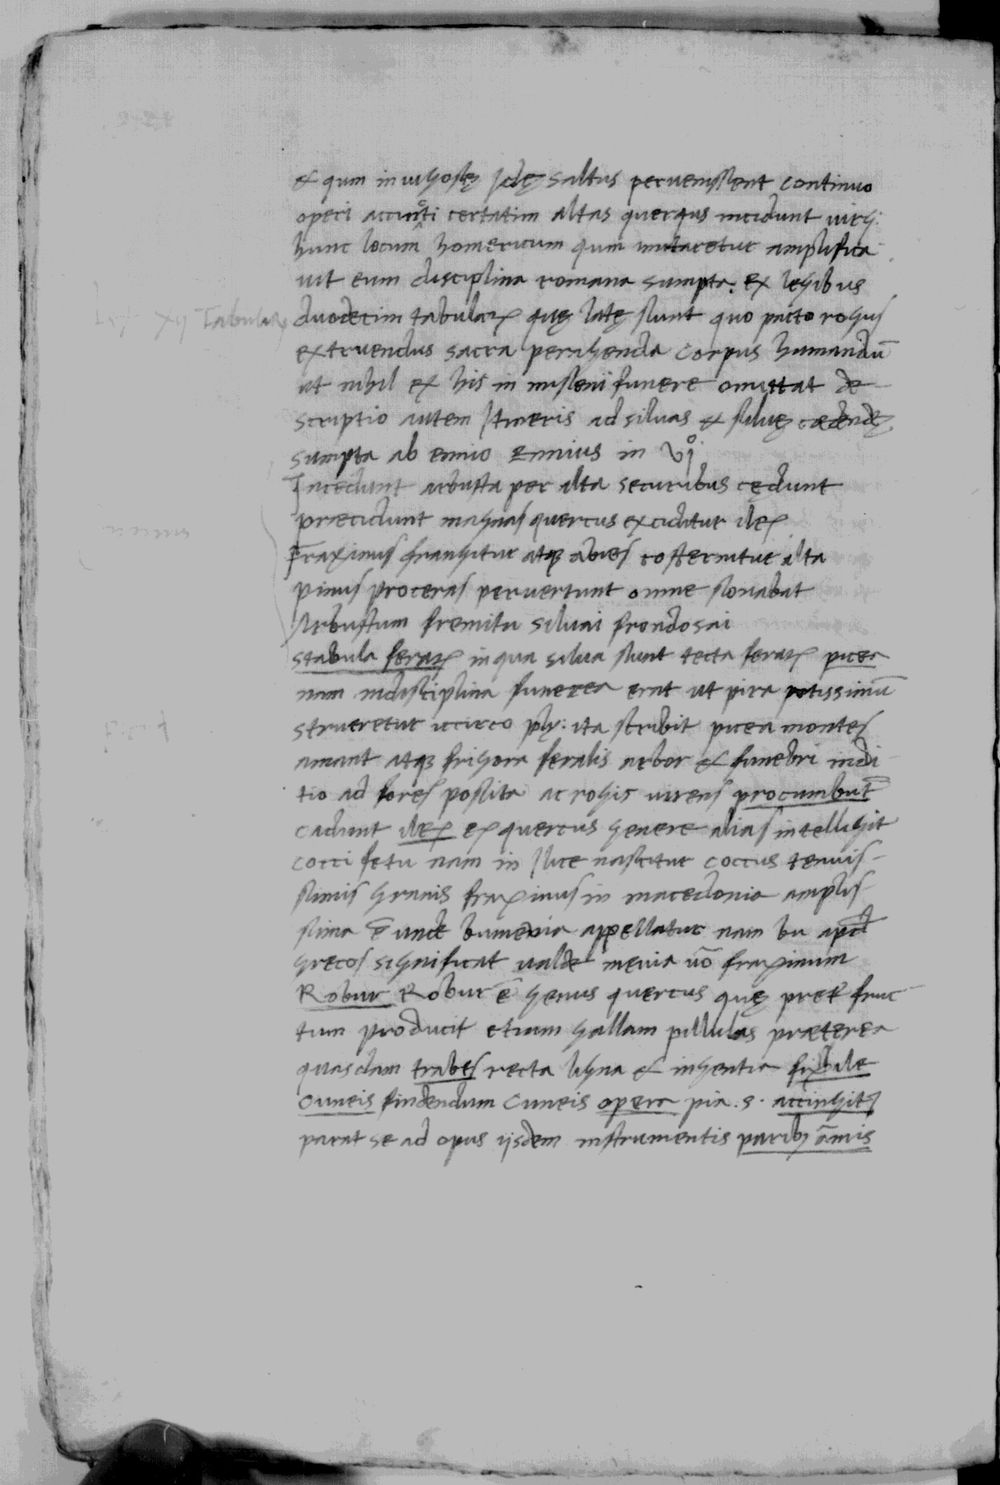 & qum in vihoshę Idę saltus pervenissent continuo
operi accincti certatim altas querqus incidunt virg:
hunc locum homericum qum mutaretur amplifica
vit eum disciplina romana sumpta. ex legibus
XII Tabulaꝝ
duodecim tabulaꝝ quę latę sunt quo pacto rogus
extruendus sacra peragenda corpus humandū
ut nihil ex his in miseni funere omittat de
scriptio autem Itineris ad silvas & silvę cædendę
sumpta ab ennio Ennius in VIº.
Incedunt arbusta per alta securibus cędunt
præcidunt magnas quercus exciditur ilex
Fraxinus frangitur atqꝫ abies costernitur alta
pinus proceras pervertunt omne sonabat
Arbustum fremitu silvai frondosai
stabula feraꝝ in qua silva sunt tecta feraꝝ picea
nam in disciplina funerea erat ut pira potissimū
strueretur iccirco ply: ita scribit picea montes
amant atqꝫ frigora feralis arbor & funebri indi
tio ad fores posita ac rogis virens procumbūt
cadunt ilex ex quercus genere alias intelligit
cocci fetu nam in Ilice nascitur coccus tenuis-
simis granis fraxinus in macedonia amplis-
sima ē unde bumenia appellatur nam bu apd
grecos significat valde menia vō fraxinum
Robur Robur ē genus quercus quę preter fruc
tum producit etiam gallam pillulas præterea
quasdam trabes recta ligna & ingentia fixile
cuneis findendum cuneis opera pia .s. accingitꝫ
parat se ad opus iisdem instrumentis paribꝫ āmis